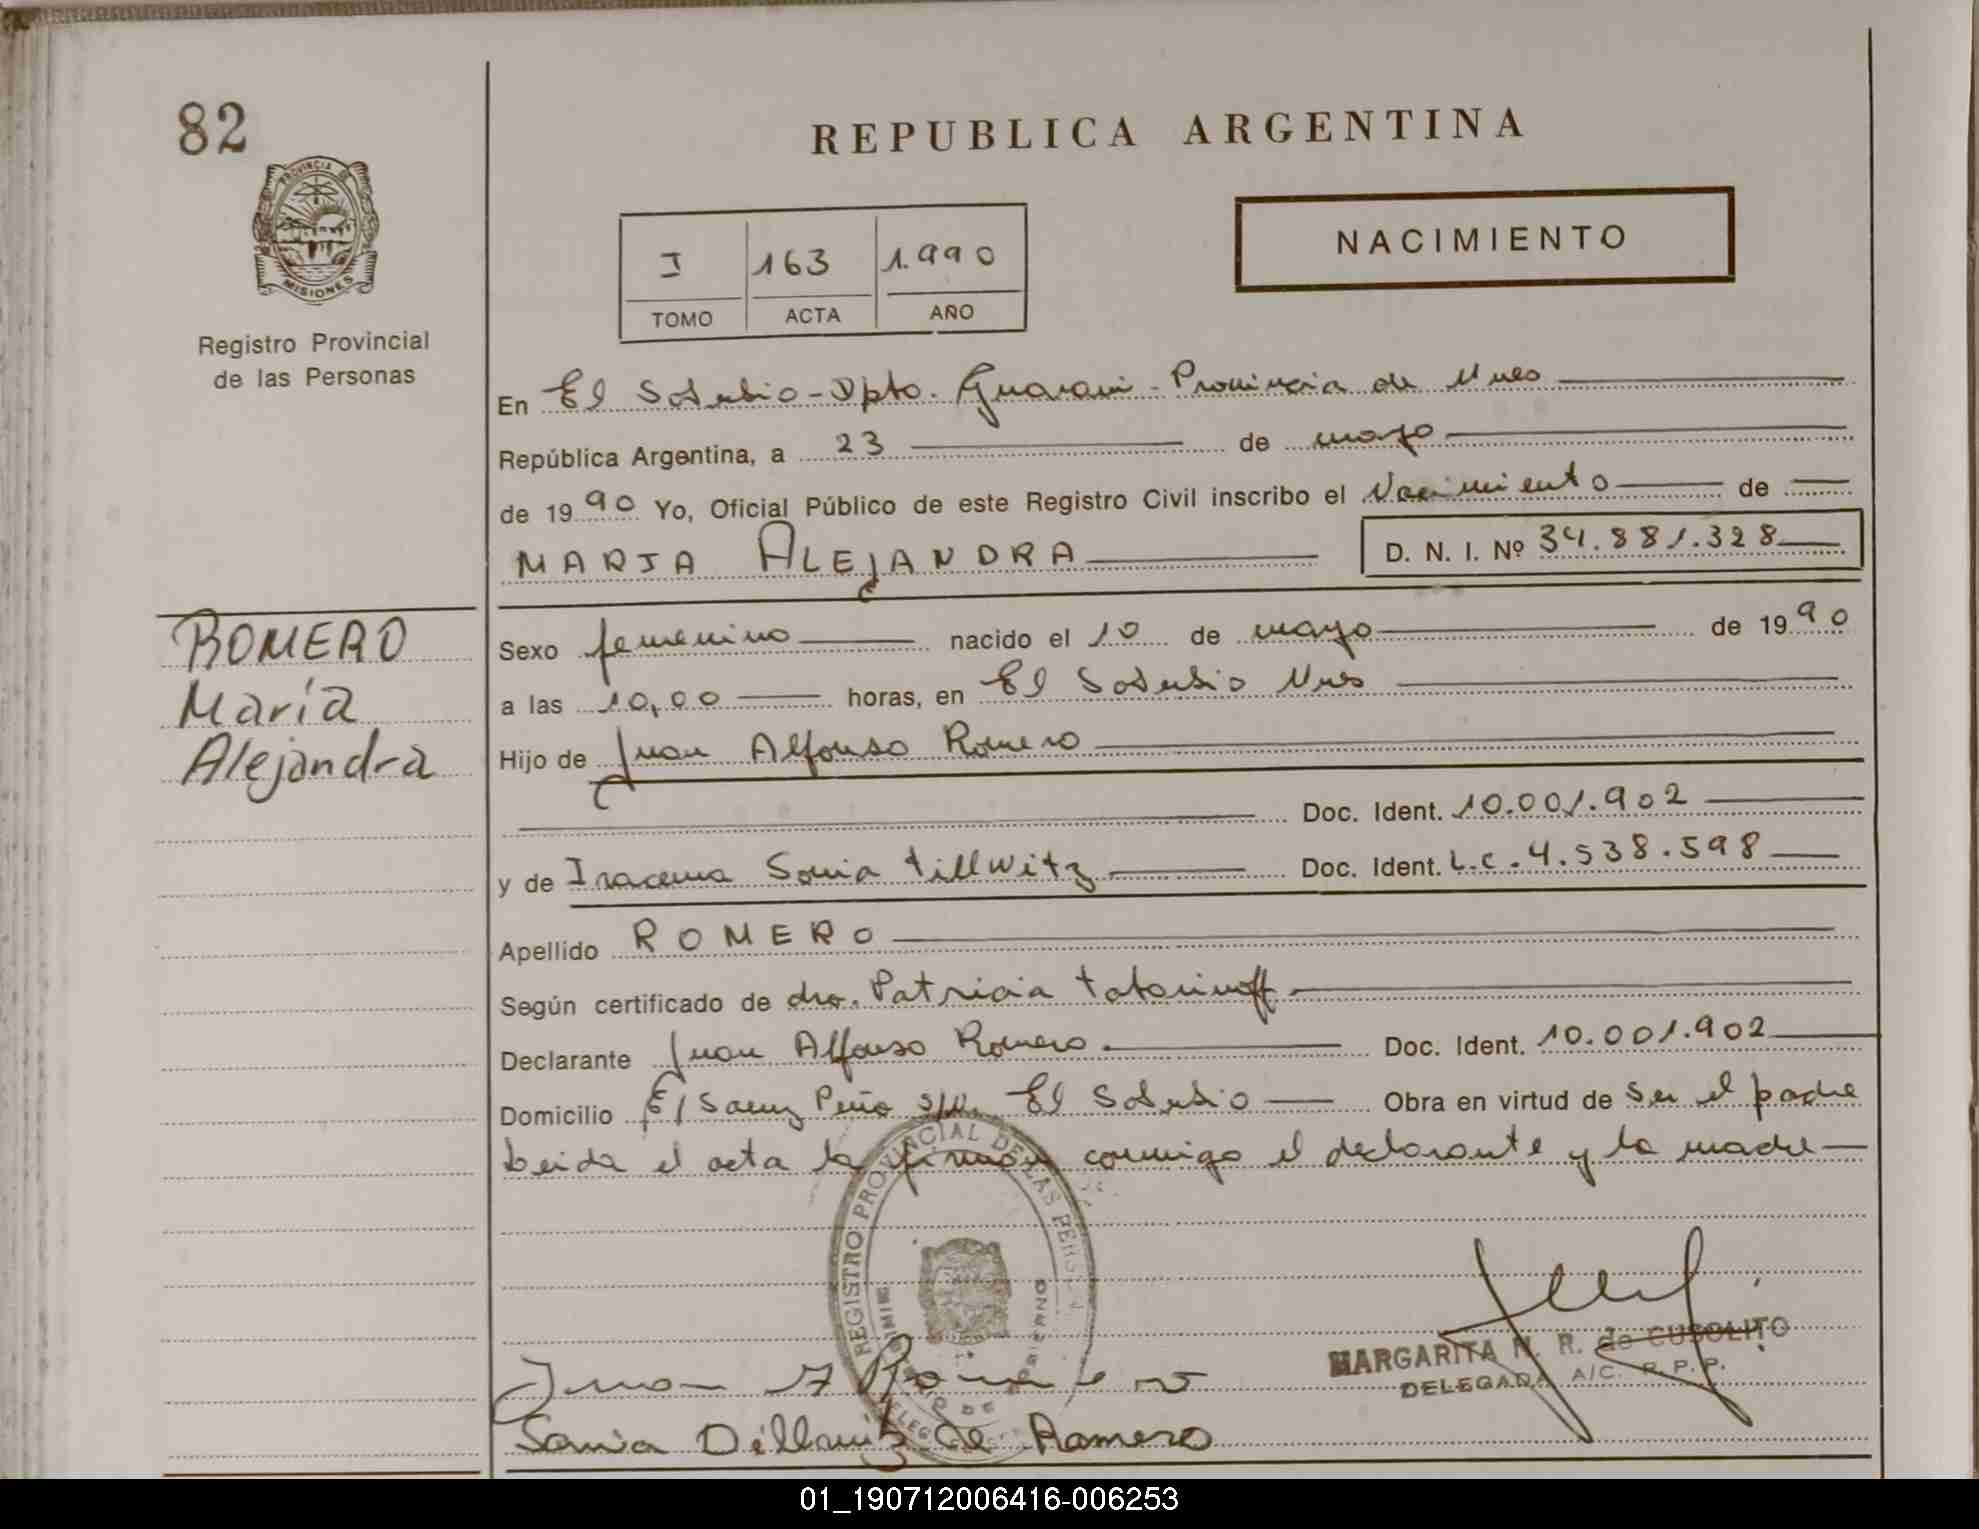 82
PROVINCIA DE
MISIONES
Registro Provincial
de las Personas
ROMERO
María
Alejandra
REPUBLICA ARGENTINA
I 163 1.990
TOMO ACTA AÑO
NACIMIENTO
En El Soberbio - Dpto. Guarani - Provincia de Mnes
República Argentina, a 23 de mayo
de 1990 Yo, Oficial Público de este Registro Civil inscribo el Nacimiento de
MARIA ALEJANDRA D. N. I. Nº 34.881.328
Sexo femenino nacido el 10 de mayo de 1990
a las 10,00 horas, en El Soberbio Mnes
Hijo de Juan Alfonso Romero
Doc. Ident. 10.001.902
y de Iracema Sonia tillwitz Doc. Ident. L.C. 4.538.598
Apellido ROMERO
Según certificado de dra. Patricia tatarinoff
Declarante Juan Alfonso Romero. Doc. Ident. 10.001.902
Domicilio C/ Saenz Peña s/n. El Soberbio Obra en virtud de ser el padre
Leida el acta la firman conmigo el declarante y la madre
REGISTRO PROVINCIAL DE LAS PERSONAS
MARGARITA R. de CUSOLITO
DELEGADA A/C. R. P. P.
Juan A Romero
Sonia Dillwitz de Romero
01_190712006416-006253